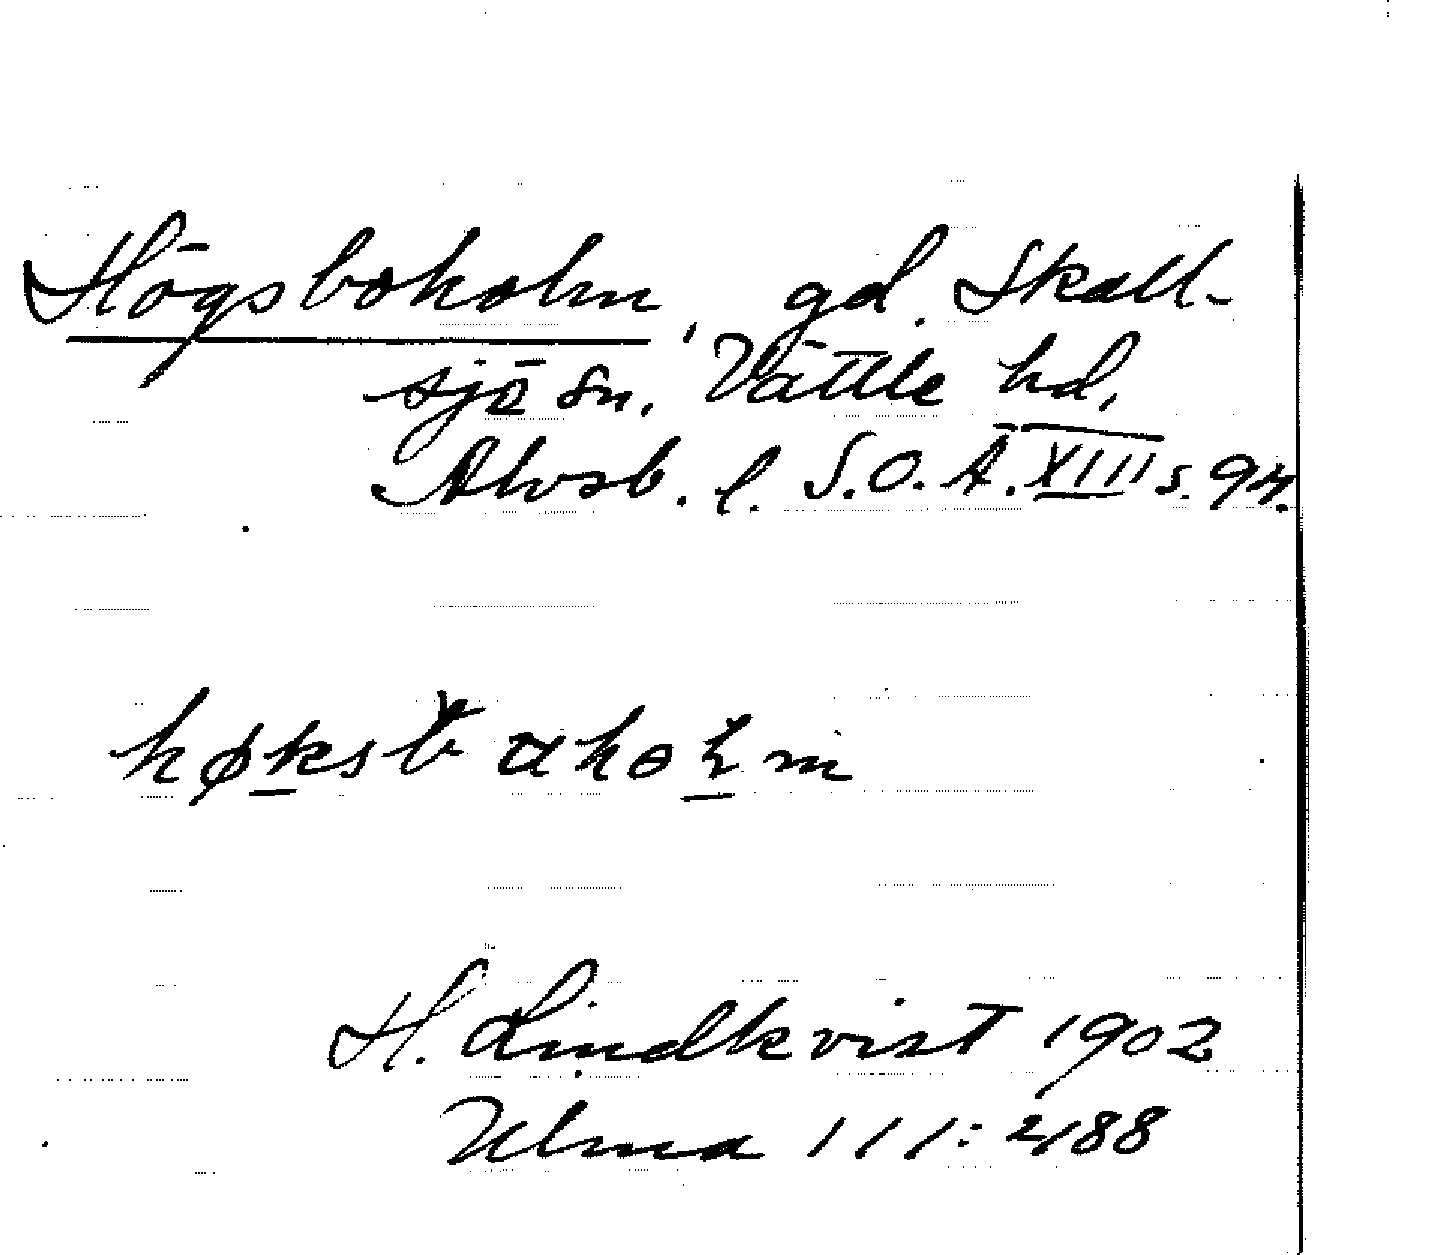 Högsboholm, gd. Skall-
sjö sn. Vättle hd,
Älvsb. l. S.O.Ä. XIII s. 94.
høksbɑhoɫm
H. Lindkvist 1902
Ulma 111: 2188